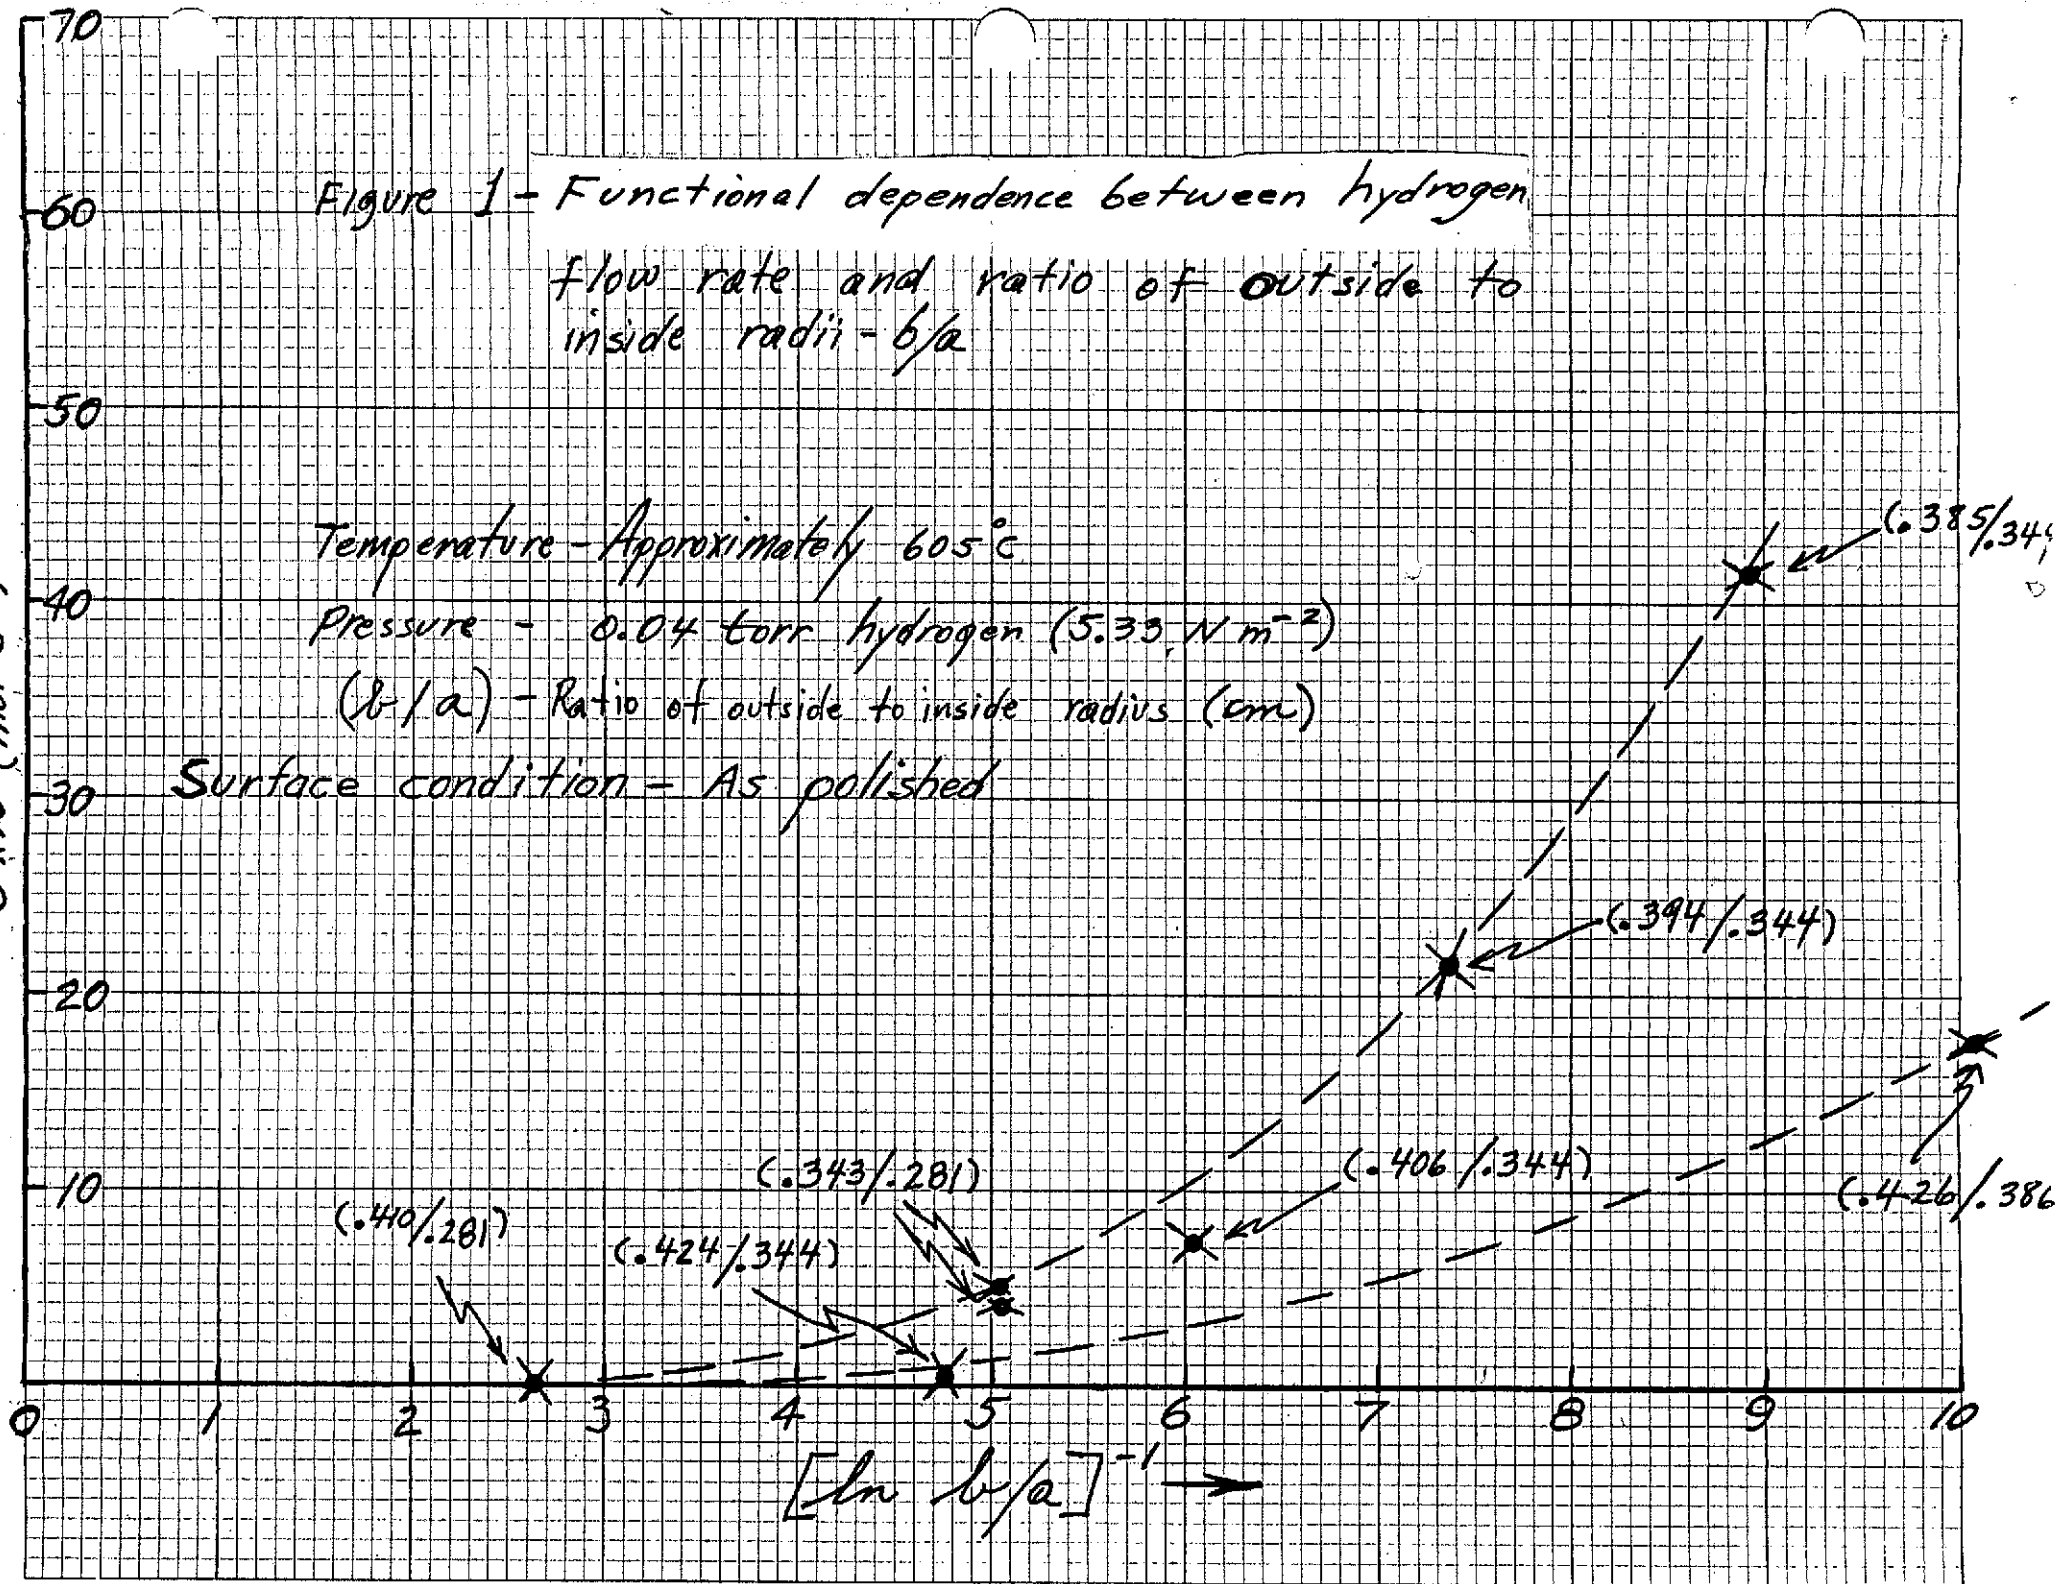 70
60
50
40
30
20
10
Figure 1 - Functional dependence between hydrogen
flow rate and ratio of outside to
inside radii - b/a
Temperature - Approximately 605°C
Pressure - 0.04 torr hydrogen (5.33 N m⁻²)
(b/a) - Ratio of outside to inside radius (cm)
Surface condition - As polished
(.385/.344
(.394/.344)
(.406/.344)
(.426/.386
(.343/.281)
(.410/.281)
(.424/.344)
0 1 2 3 4 5 6 7 8 9 10
[ln b/a]⁻¹ →